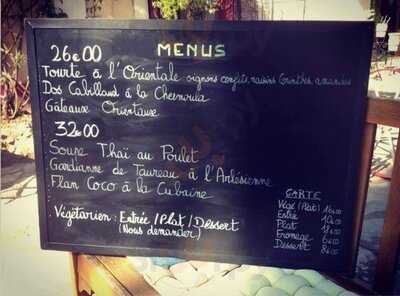 MENUS
26€00
Tourte à l'Orientale oignons confits, raisins Corinthe, amandes
Dos Cabillaud à la Chermoula
Gâteaux Orientaux
32€00
Soupe Thaï au Poulet
Gardianne de Taureau à l'Arlésienne
Flan Coco à la Cubaine
Végétarien: Entrée/Plat/Dessert
(Nous demander)
CARTE
Végé (Plat)
Entrée
Plat
Fromage
Dessert